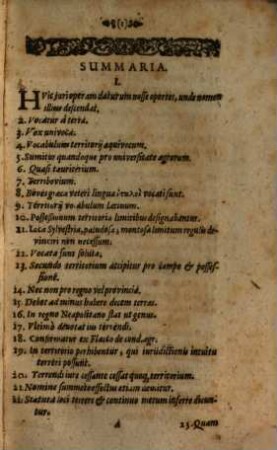 (1)
SUMMARIA.
I.
HVic juri operam daturum nosse oportet, unde nomen
illius descendat.
2. Vocatur à terra.
3. Vox univoca.
4. Vocabulum territorij æquivocum.
5. Sumitur quandoque pro universitate agrorum.
6. Quasi tauritorium.
7. Terribovium.
8. Boves græca veteri lingua vocati sunt.
9. Territorij vocabulum latinum.
10. Possessionum territoria limitibus designabantur.
11. Loca Sylvestria, paludosa, montosa limitum regulis de-
vinciri non necessum.
12. Vocata sunt soluta.
13. Secundo territorium accipitur pro campo & posses-
sione.
14. Nec non pro regno vel provincia.
15. Debet ad minus habere decem terras.
16. In regno Neapolitano stat ut genus.
17. Vltimò denotat ius terrendi.
18. Confirmatur ex Flacco de cond. agr.
19. In territorio perhibentur, qui iurisdictionis intuitu
terreri possunt.
20. Terrendi iure cessante cessat quoq; territorium.
21. Nomine summo effectus etiam
22. Statuta loci terrere & continuò metum inferre dicun-
tur.
A
23. Quam